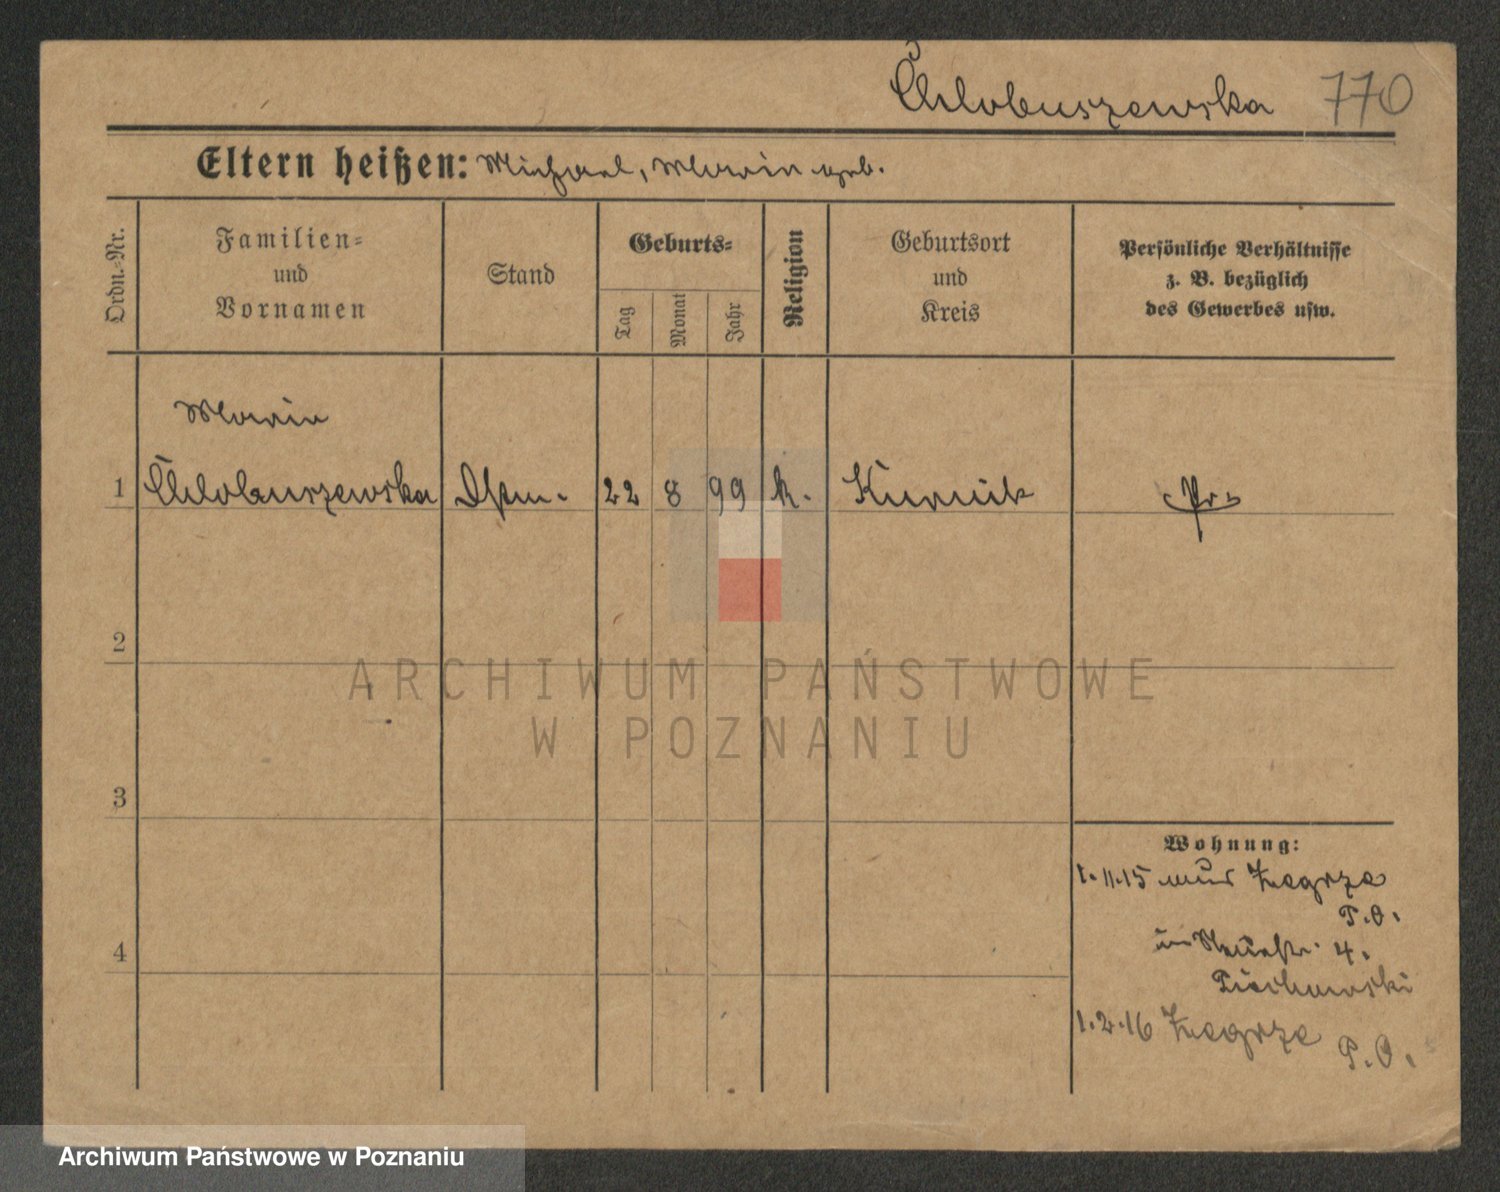 Chlobuszewska 770
Eltern heißen: Michael, Marie geb.
Ordn.-Nr.
Familien-
und
Vornamen
Stand
Geburts-
Tag
Monat
Jahr
Religion
Geburtsort
und
Kreis
Persönliche Verhältnisse
z. B. bezüglich
des Gewerbes usw.
Marie
1 Chlobuszewska Dstm. 22 8 99 k. Kurnik Pr
2
3
4
Wohnung:
1.11.15 aus Zegrze
P.O.
in Neuestr. 4.
Piechowski
1.2.16 Zegrze
P.O.
ARCHIWUM PAŃSTWOWE
W POZNANIU
Archiwum Państwowe w Poznaniu